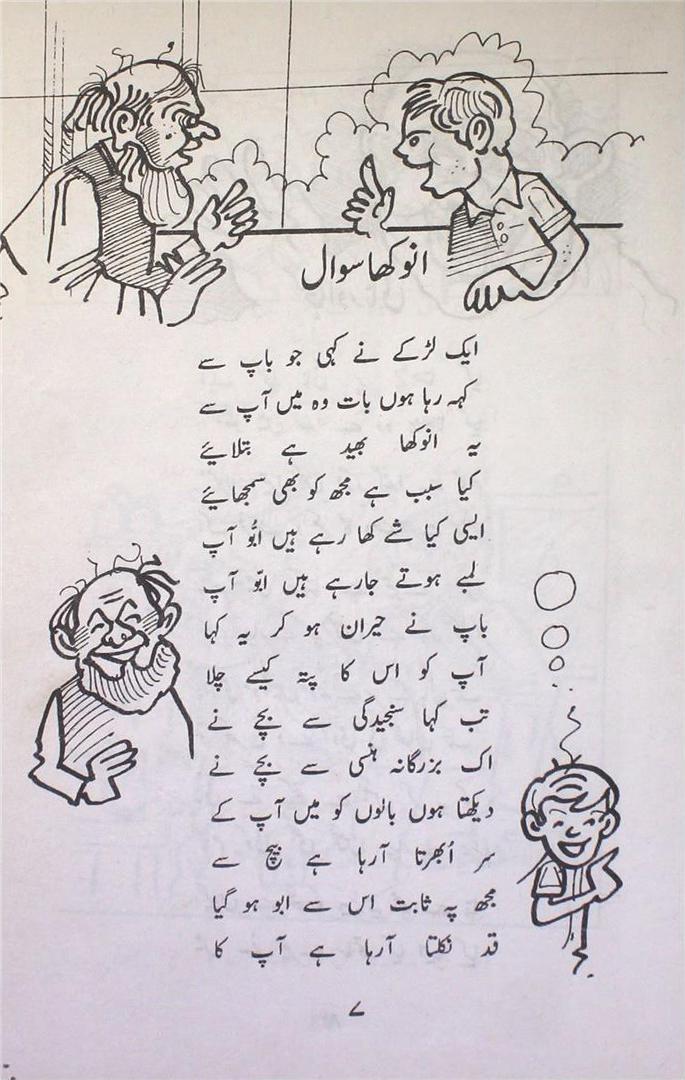 انوکھا سوال
ایک لڑکے نے کہی جو باپ سے
کہہ رہا ہوں بات وہ میں آپ سے
یہ انوکھا بھید ہے بتلایئے
کیا سبب ہے مجھ کو بھی سمجھایئے
ایسی کیا شے کھا رہے ہیں ابُّو آپ
لمبے ہوتے جارہے ہیں ابّو آپ
باپ نے حیران ہو کر یہ کہا
آپ کو اس کا پتہ کیسے چلا
تب کہا سنجیدگی سے بچے نے
اک بزرگانہ ہنسی سے بچے نے
دیکھتا ہوں بالوں کو میں آپ کے
سر اُبھرتا آرہا ہے بیچ سے
مجھ پہ ثابت اس سے ابو ہو گیا
قد نکلتا آرہا ہے آپ کا
۷